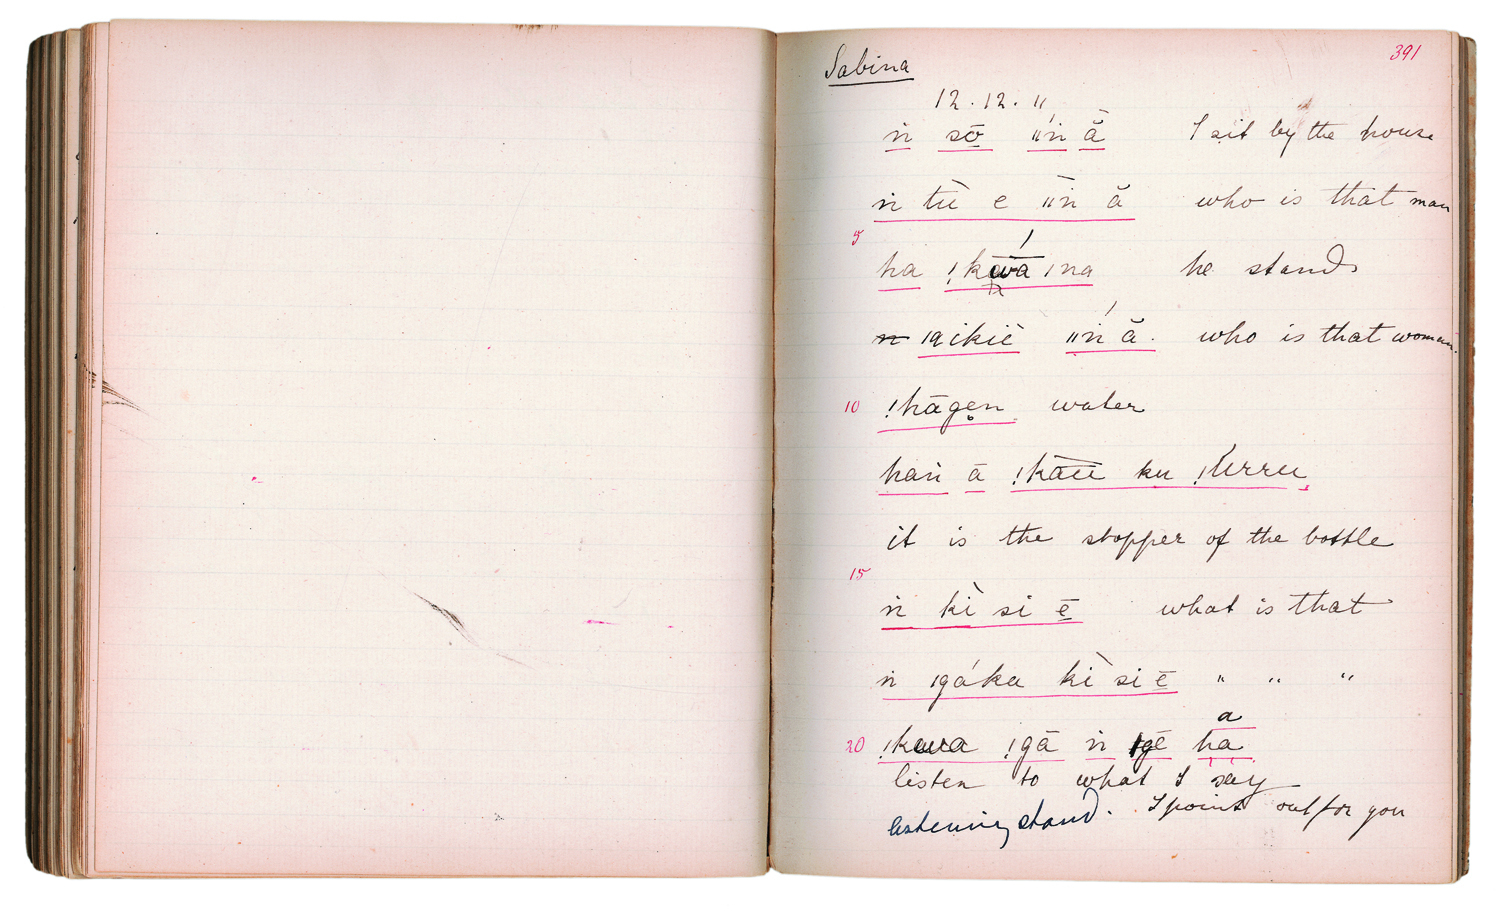 391
Sabina
12.12.11
ṅ sō ǁṅ ā̆ I sit by the house
ṅ tù̄ e ǁṅ ă who is that man
5
ha ǃkwā ǀna he stands
ǀqikiè ǁṅ ă. who is that woman.
10 ǃhāgen water
haṅ ā ǃkāū ku ǃkurru
it is the stopper of the bottle
15
ṅ kì si ē what is that
ṅ ǀgáka kì si ē " " "
a
20 ǃkwa ǃgā ṅ ǀgē ha
listen to what I say
listening stand. I point out for you